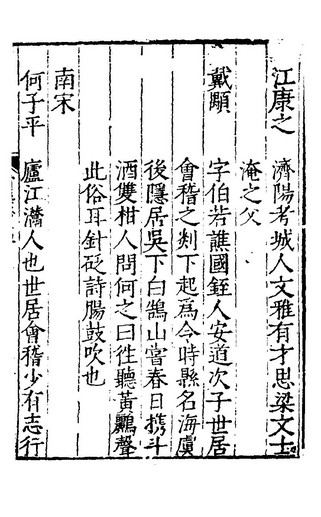 江康之
濟陽考城人文雅有才思梁文士
淹之父
戴顒
字伯若譙國銍人安道次子世居
會稽之剡下起爲今時縣名海虞
後隱居吳下白鵠山嘗春日携斗
酒雙柑人問何之曰往聽黃鸝聲
此俗耳針砭詩腸鼓吹也
南宋
何子平
廬江灊人也世居會稽少有志行